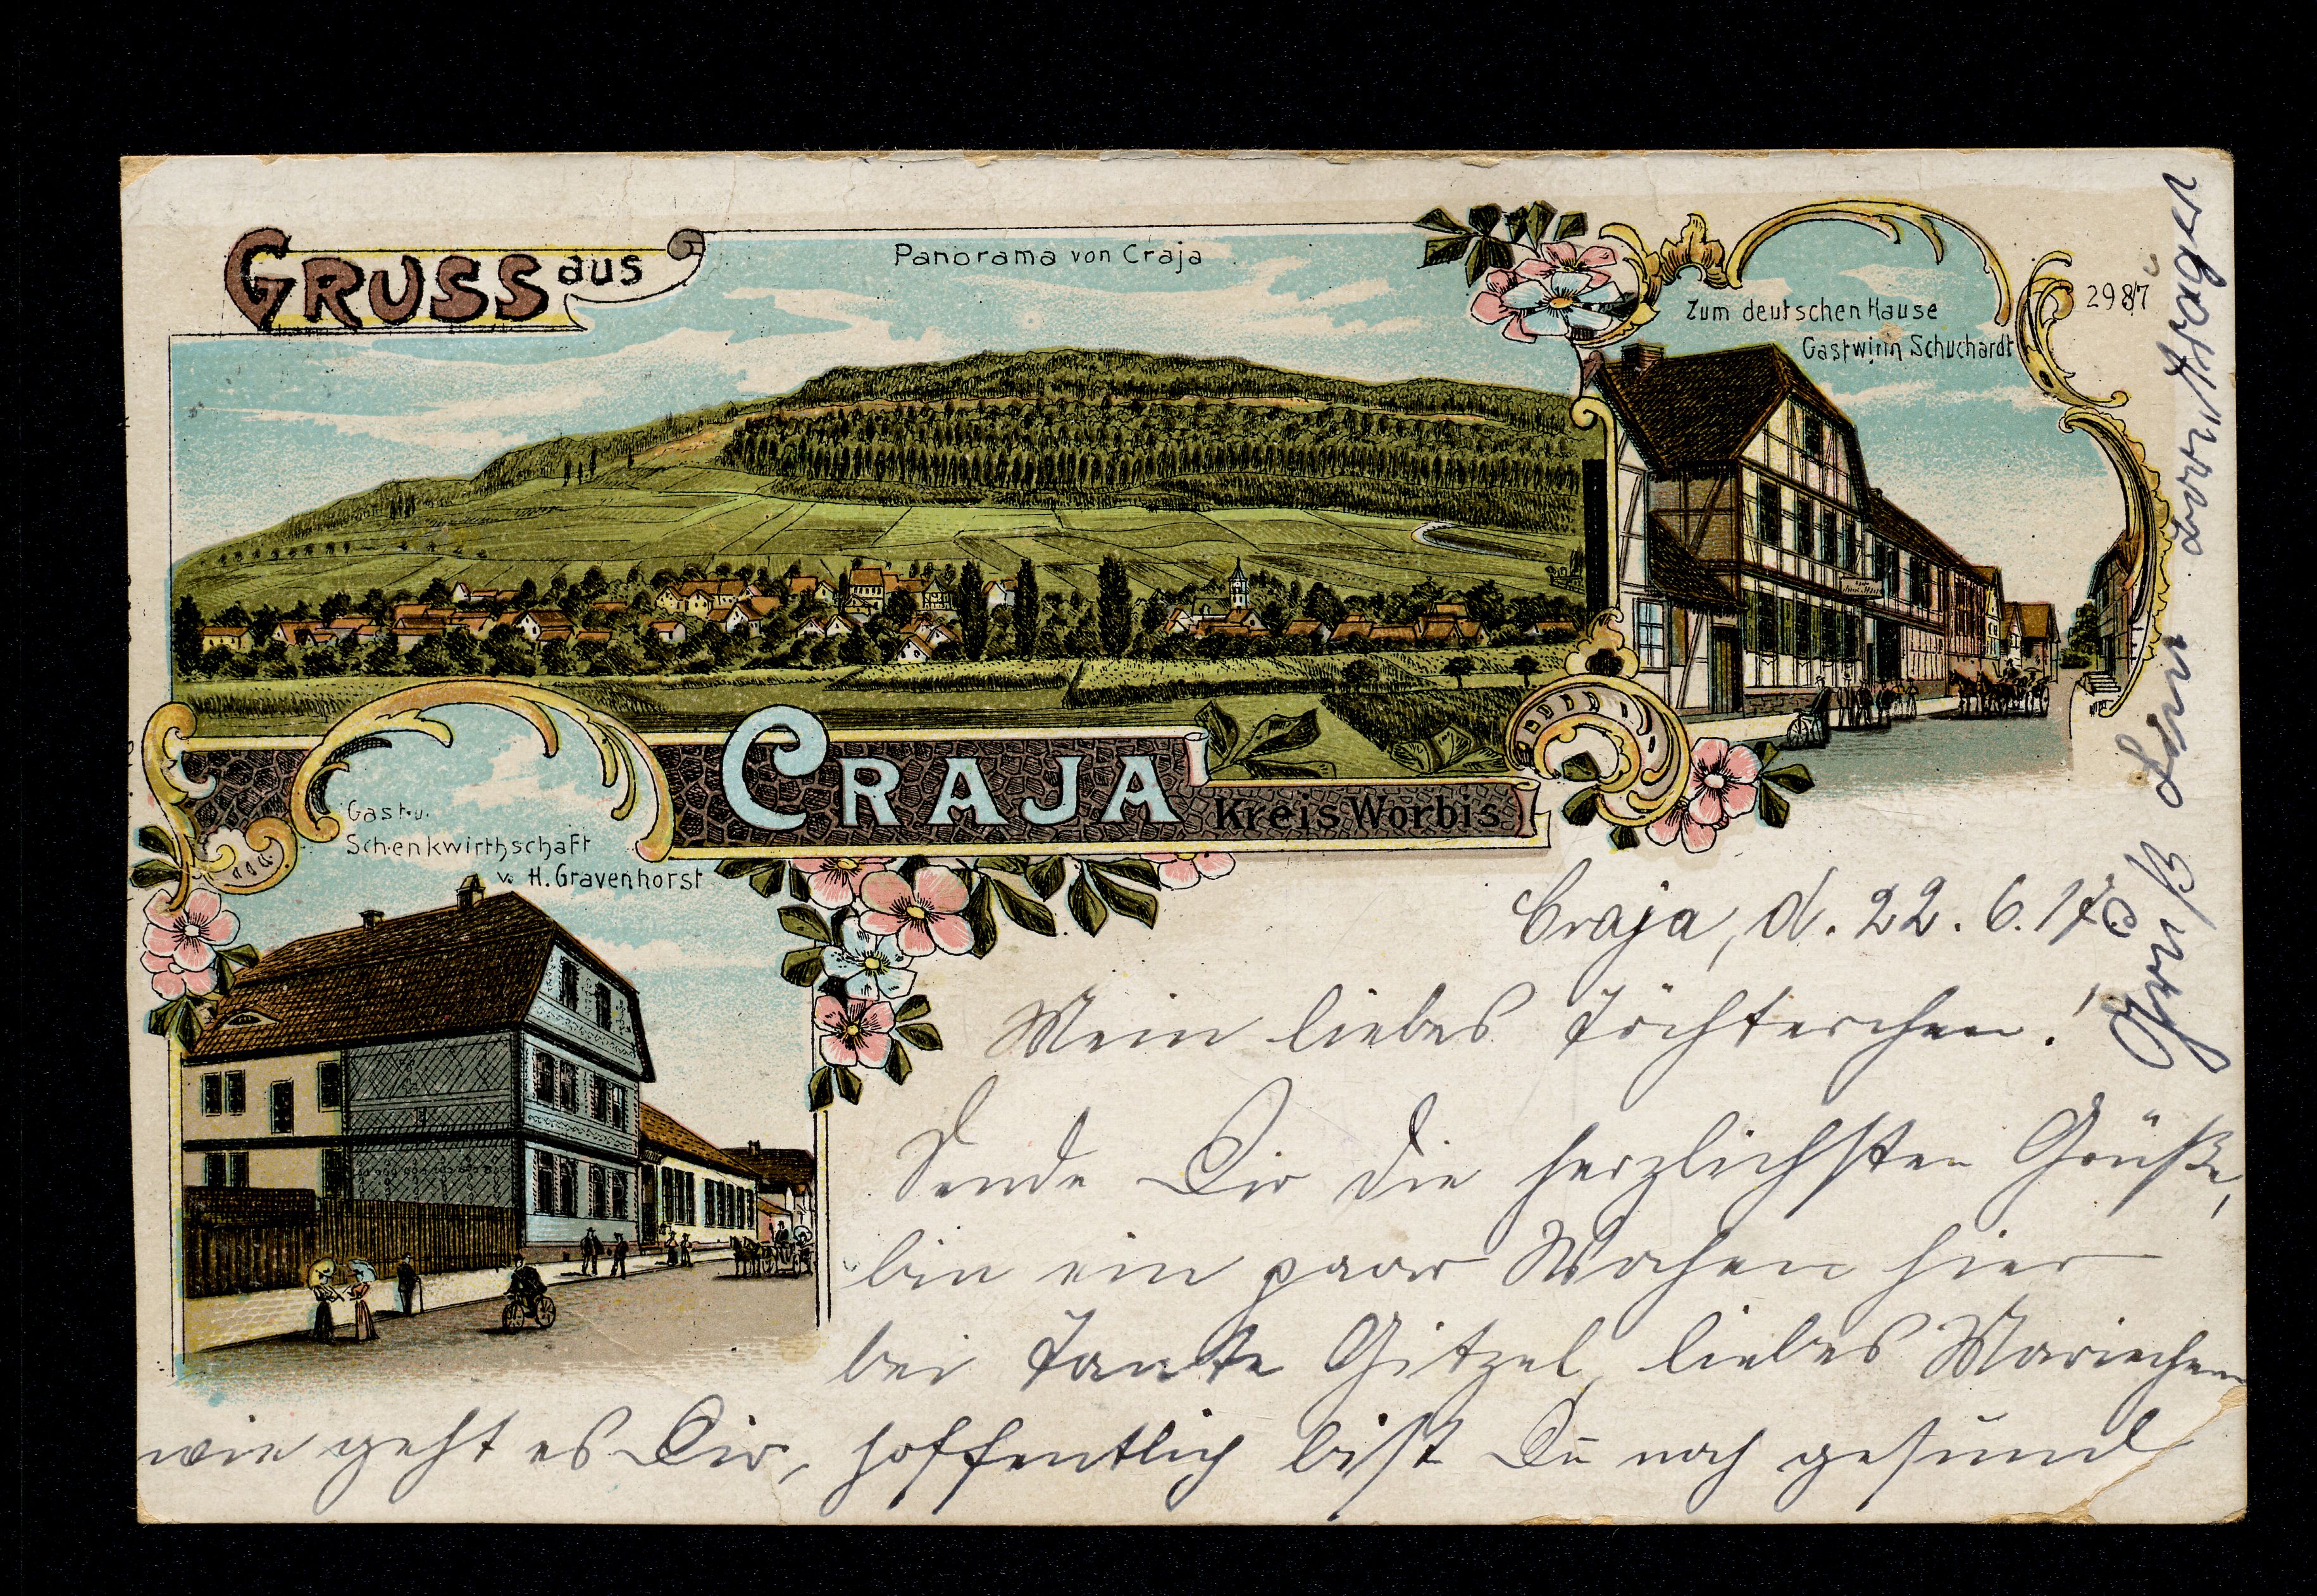 GRUSS aus
Panorama von Craja
Zum deutschen Hause
Gastwirin Schuchardt
2987
CRAJA Kreis Worbis
Gast u.
Schenkwirthschaft
v. H. Gravenhorst
Craja, d. 22. 6. 17
Mein liebes Töchterchen!
Sende Dir die herzlichsten Grüße,
bin ein paar Wochen hier
bei Tante Gitzel, liebes Mariechen
wie geht es Dir, hoffentlich bist Du noch gesund
Gruß